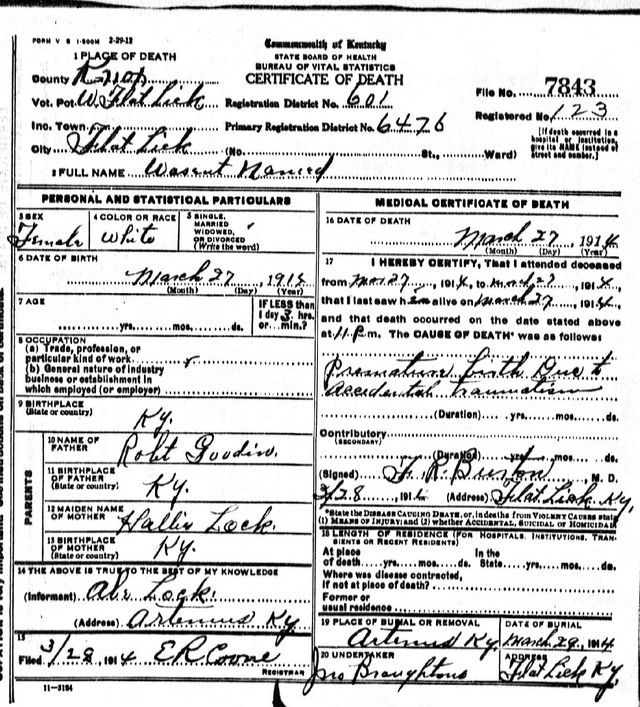 FORM V S 1-500M 2-29-12
Commonwealth of Kentucky
STATE BOARD OF HEALTH
BUREAU OF VITAL STATISTICS
CERTIFICATE OF DEATH
1 PLACE OF DEATH
County Knox
Vot. Pct W. Flat Lick
Inc. Town
City Flat Lick
Registration District No. 601
Primary Registration District No. 6476
(No. St., Ward)
File No. 7843
Registered No. 123
[If death occurred in a hospital or institution, give its NAME instead of street and number.]
2 FULL NAME Wasent Named
PERSONAL AND STATISTICAL PARTICULARS
3 SEX
Female
4 COLOR OR RACE
White
5 SINGLE,
MARRIED
WIDOWED,
OR DIVORCED
(Write the word)
6 DATE OF BIRTH
March 27, 191
(Month) (Day) (Year)
7 AGE
yrs. mos. ds.
IF LESS than
1 day 3 hrs.
or min.?
8 OCCUPATION
(a) Trade, profession, or
particular kind of work
(b) General nature of industry
business or establishment in
which employed (or employer)
9 BIRTHPLACE
(State or country)
Ky.
PARENTS
10 NAME OF
FATHER
Robt Goodin
11 BIRTHPLACE
OF FATHER
(State or country)
Ky.
12 MAIDEN NAME
OF MOTHER
Hallie Lock.
13 BIRTHPLACE
OF MOTHER
(State or country)
Ky.
14 THE ABOVE IS TRUE TO THE BEST OF MY KNOWLEDGE
(Informant) Lock.
(Address) Artemus Ky
15
Filed 3/28, 1914 E R Coone
REGISTRAR
11-3184
MEDICAL CERTIFICATE OF DEATH
16 DATE OF DEATH
March 27, 1914
(Month) (Day) (Year)
17 I HEREBY CERTIFY, That I attended deceased
from Mar 27, 1914, to March 27, 1914,
that I last saw h alive on March 27, 1914,
and that death occurred on the date stated above
at 11 P.m. The CAUSE OF DEATH* was as follows:
Premature birth Due to
accidental traumatism
(Duration) yrs. mos. ds.
Contributory
(SECONDARY)
(Duration) yrs. mos. ds.
(Signed) R. Burton, M. D.
3/28, 191 (Address) Flat Lick Ky,
*State the DISEASE CAUSING DEATH, or, in deaths from VIOLENT CAUSES state
(1) MEANS OF INJURY; and (2) whether ACCIDENTAL, SUICIDAL or HOMICIDAL
18 LENGTH OF RESIDENCE (FOR HOSPITALS, INSTITUTIONS, TRANSIENTS OR RECENT RESIDENTS)
At place In the
of death yrs. mos. ds. State yrs. mos. ds.
Where was disease contracted,
if not at place of death?
Former or
usual residence
19 PLACE OF BURIAL OR REMOVAL
Artemus Ky.
DATE OF BURIAL
March 29, 1914
20 UNDERTAKER
Jno Broughtons
ADDRESS
Flat Lick Ky,